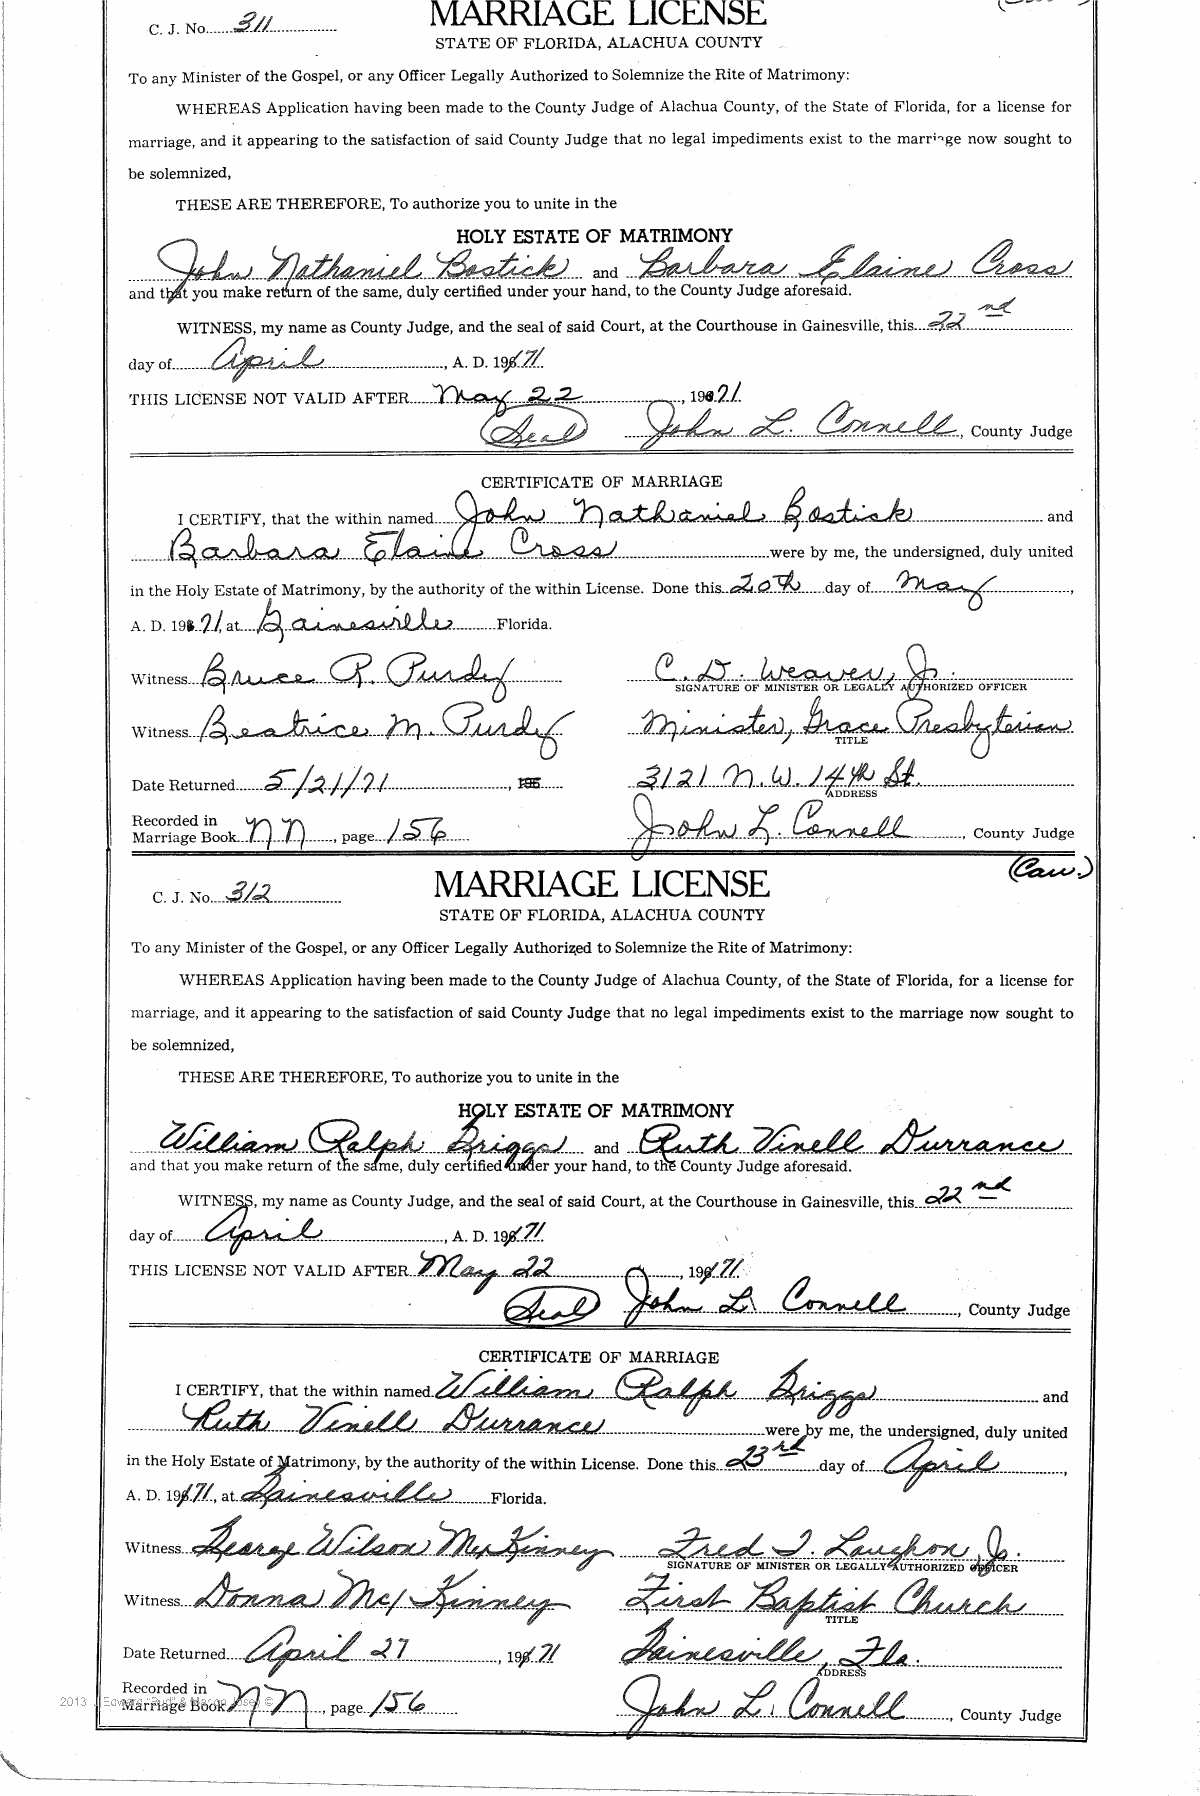 C. J. No. 311
MARRIAGE LICENSE
STATE OF FLORIDA, ALACHUA COUNTY
To any Minister of the Gospel, or any Officer Legally Authorized to Solemnize the Rite of Matrimony:
WHEREAS Application having been made to the County Judge of Alachua County, of the State of Florida, for a license for
marriage, and it appearing to the satisfaction of said County Judge that no legal impediments exist to the marriage now sought to
be solemnized,
THESE ARE THEREFORE, To authorize you to unite in the
HOLY ESTATE OF MATRIMONY
John Nathaniel Bostick and Barbara Elaine Cross
and that you make return of the same, duly certified under your hand, to the County Judge aforesaid.
WITNESS, my name as County Judge, and the seal of said Court, at the Courthouse in Gainesville, this 22nd
day of April, A. D. 1971.
THIS LICENSE NOT VALID AFTER May 22, 1971.
(Seal) John L. Connell, County Judge
CERTIFICATE OF MARRIAGE
I CERTIFY, that the within named John Nathaniel Bostick and
Barbara Elaine Cross were by me, the undersigned, duly united
in the Holy Estate of Matrimony, by the authority of the within License. Done this 20th day of May,
A. D. 1971, at Gainesville Florida.
Witness Bruce R. Purdy C. D. Weaver, Jr.
SIGNATURE OF MINISTER OR LEGALLY AUTHORIZED OFFICER
Witness Beatrice M. Purdy Minister, Grace Presbyterian
TITLE
Date Returned 5/21/71, 195 3121 N.W. 14th St.
ADDRESS
Recorded in
Marriage Book NN, page 156 John L. Connell, County Judge
(Cau.)
C. J. No. 312
MARRIAGE LICENSE
STATE OF FLORIDA, ALACHUA COUNTY
To any Minister of the Gospel, or any Officer Legally Authorized to Solemnize the Rite of Matrimony:
WHEREAS Application having been made to the County Judge of Alachua County, of the State of Florida, for a license for
marriage, and it appearing to the satisfaction of said County Judge that no legal impediments exist to the marriage now sought to
be solemnized,
THESE ARE THEREFORE, To authorize you to unite in the
HOLY ESTATE OF MATRIMONY
William Ralph Briggs and Ruth Vinell Durrance
and that you make return of the same, duly certified under your hand, to the County Judge aforesaid.
WITNESS, my name as County Judge, and the seal of said Court, at the Courthouse in Gainesville, this 22nd
day of April, A. D. 1971.
THIS LICENSE NOT VALID AFTER May 22, 1971.
(Seal) John L. Connell, County Judge
CERTIFICATE OF MARRIAGE
I CERTIFY, that the within named William Ralph Briggs and
Ruth Vinell Durrance were by me, the undersigned, duly united
in the Holy Estate of Matrimony, by the authority of the within License. Done this 23rd day of April,
A. D. 1971, at Gainesville Florida.
Witness George Wilson McKinney Fred T. Laughon, Jr.
SIGNATURE OF MINISTER OR LEGALLY AUTHORIZED OFFICER
Witness Donna McKinney First Baptist Church
TITLE
Date Returned April 27, 1971 Gainesville, Fla.
ADDRESS
Recorded in
Marriage Book NN, page 156 John L. Connell, County Judge
2013